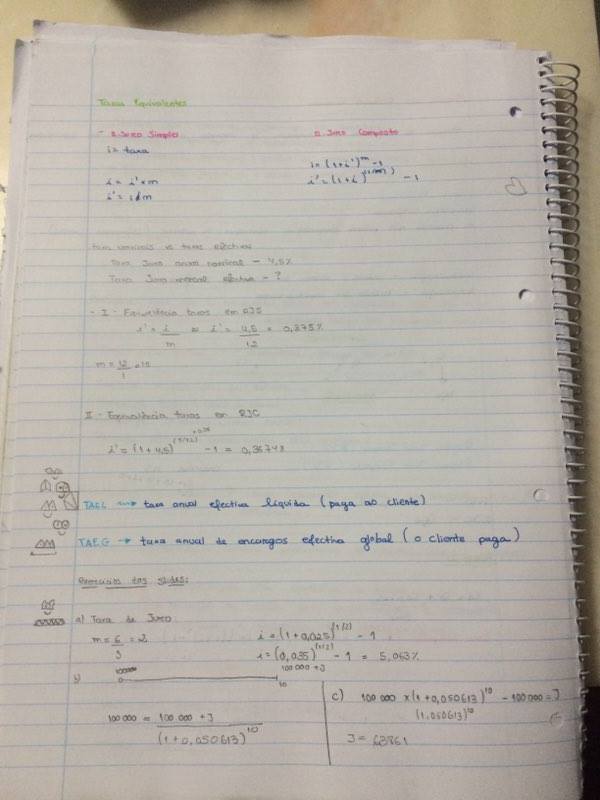 Taxas Equivalentes
- R. Juro Simples
R. Juro Composto
i = taxa
i = (1+i')^m - 1
i = i' x m
i' = (1+i)^(1/m) - 1
i' = i d m
taxas nominais vs taxas efectivas
Taxa Juro anual nominal - 4,5%
Taxa Juro mensal efectiva - ?
- I - Equivalência taxas em RJS
i' = i/m i' = 4,5/12 = 0,375%
m = 12/1
II - Equivalência taxas em RJC
i' = (1+4,5)^(1/12) - 1 = 0,36748
TAEL → taxa anual efectiva líquida (paga ao cliente)
TAEG → taxa anual de encargos efectiva global (o cliente paga)
Exercícios dos slides:
a) Taxa de Juro
m = 6/3 = 2
i = (1+0,025)^(1/2) - 1
i = (0,035)^(1/2) - 1 = 5,063%
b)
100000
100 000 + J
10
100 000 = 100 000 + J / (1+0,050613)^10
c) 100 000 x (1+0,050613)^10 - 100 000 = J
(1,050613)^10
J = 63861